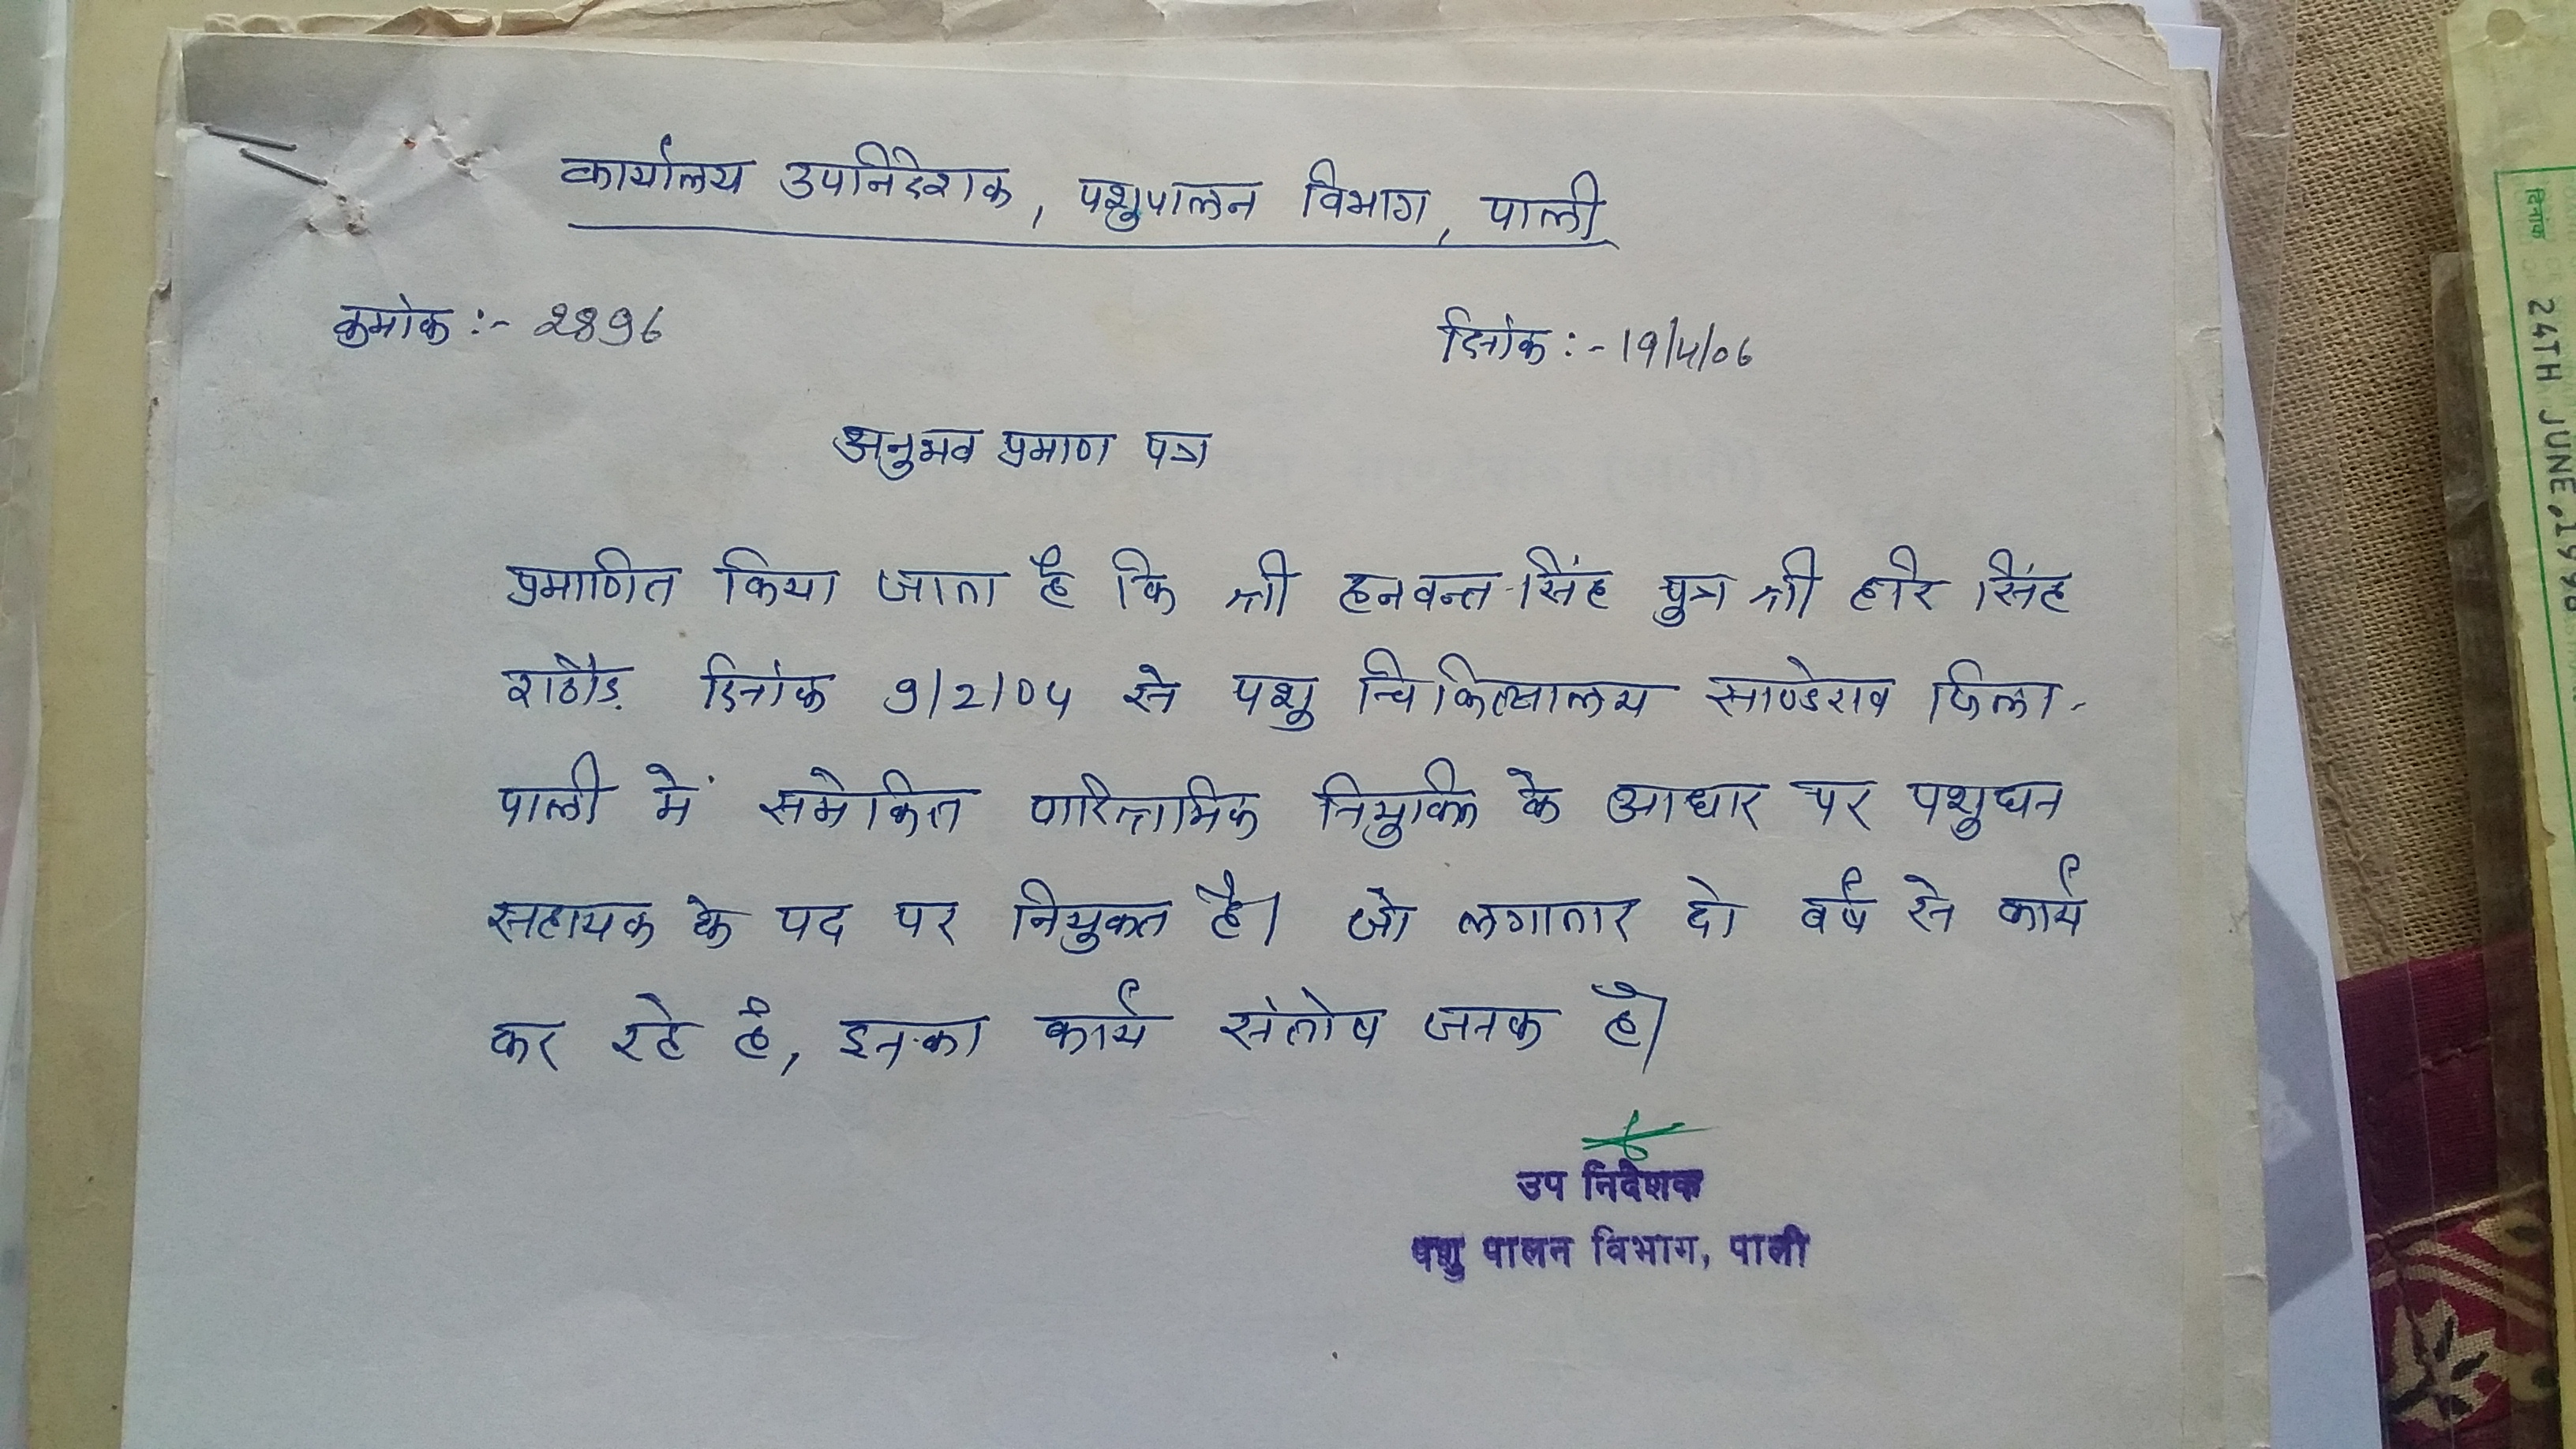 कार्यालय उपनिदेशक, पशुपालन विभाग, पाली
क्रमांक :- 2896
दिनांक :- 19/4/06
अनुभव प्रमाण पत्र
प्रमाणित किया जाता है कि श्री हनवन्त सिंह पुत्र श्री हरि सिंह
राठौड़ दिनांक 9/2/04 से पशु चिकित्सालय साण्डेराव जिला -
पाली में समेकित पारिश्रामिक नियुक्ति के आधार पर पशुधन
सहायक के पद पर नियुक्त है। जो लगातार दो वर्ष से कार्य
कर रहे है, इनका कार्य संतोष जनक है।
उप निदेशक
पशु पालन विभाग, पाली
दिनांक
24TH JUNE,